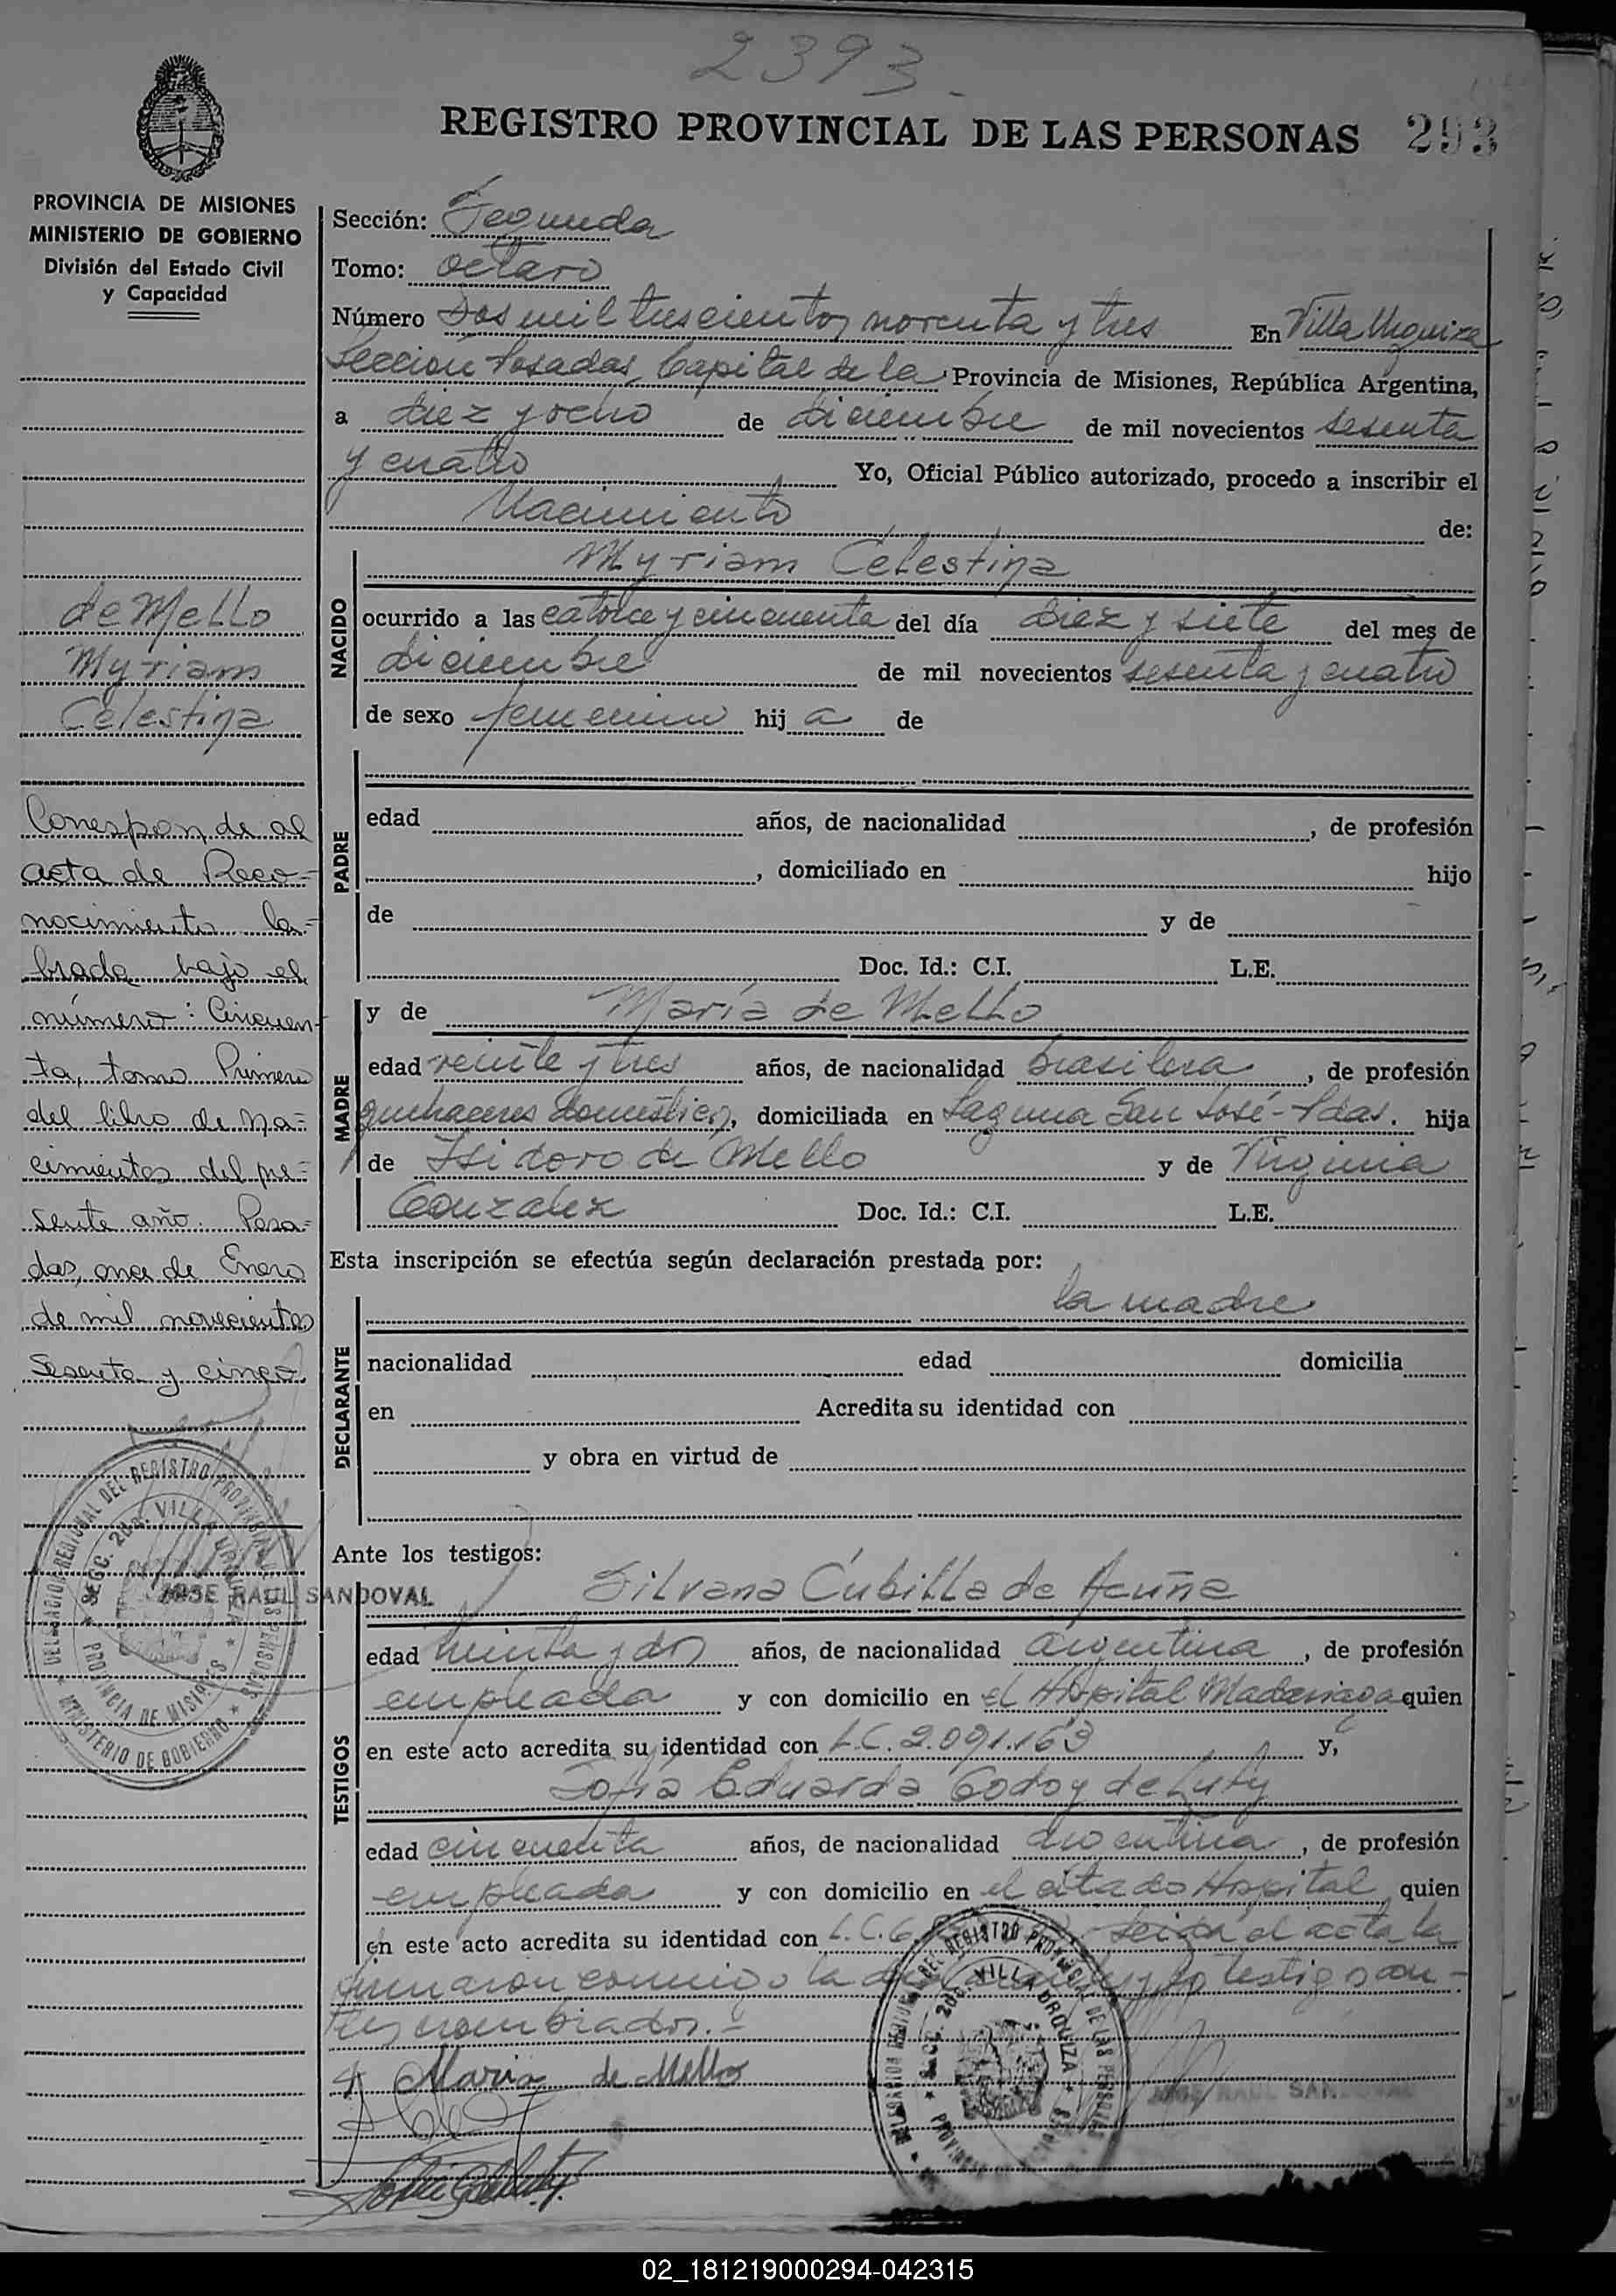 2393
REGISTRO PROVINCIAL DE LAS PERSONAS 293
PROVINCIA DE MISIONES
MINISTERIO DE GOBIERNO
División del Estado Civil
y Capacidad
de Mello
Myriam
Celestina
Corresponde al
acta de Reco-
nocimiento la-
brada bajo el
número: Cincuen-
ta, tomo Primero
del libro de na-
cimientos del pre-
sente año. Posa-
das, once de Enero
de mil novecientos
Sesenta y cinco
DELEGACION REGIONAL DEL REGISTRO PROVINCIAL DE LAS PERSONAS
SECC. 2da. VILLA URQUIZA
PROVINCIA DE MISIONES
MINISTERIO DE GOBIERNO
JOSE RAUL SANDOVAL
Sección: Segunda
Tomo: octavo
Número Dos mil trescientos noventa y tres En Villa Urquiza
Sección Posadas, Capital de la Provincia de Misiones, República Argentina,
a diez y ocho de diciembre de mil novecientos sesenta
y cuatro Yo, Oficial Público autorizado, procedo a inscribir el
Nacimiento de:
NACIDO
Myriam Celestina
ocurrido a las catorce y cincuenta del día diez y siete del mes de
diciembre de mil novecientos sesenta y cuatro
de sexo femenino hij a de
PADRE
edad años, de nacionalidad , de profesión
, domiciliado en hijo
de y de
Doc. Id.: C.I. L.E.
MADRE
y de María de Mello
edad veinte y tres años, de nacionalidad brasilera, de profesión
quehaceres domésticos, domiciliada en Laguna San José-Pdas. hija
de Isidoro de Mello y de Virginia
Gonzalez Doc. Id.: C.I. L.E.
Esta inscripción se efectúa según declaración prestada por:
la madre
DECLARANTE
nacionalidad edad domicilia
en Acredita su identidad con
y obra en virtud de
Ante los testigos:
TESTIGOS
Silvana Cubilla de Acuña
edad treinta y dos años, de nacionalidad argentina, de profesión
empleada y con domicilio en el Hospital Madariaga quien
en este acto acredita su identidad con L.C. 2.091.163 y,
Sofia Eduarda Godoy de
edad cincuenta años, de nacionalidad argentina, de profesión
empleada y con domicilio en el citado Hospital quien
en este acto acredita su identidad con L.C. 6. Leida el acta la
firmaron conmigo la testigos an-
tes nombrados.-
María de Mello
DELEGACION REGIONAL DEL REGISTRO PROVINCIAL DE LAS PERSONAS
SECC. 2da. VILLA URQUIZA
PROVINCIA DE MISIONES
JOSE RAUL SANDOVAL
02_181219000294-042315